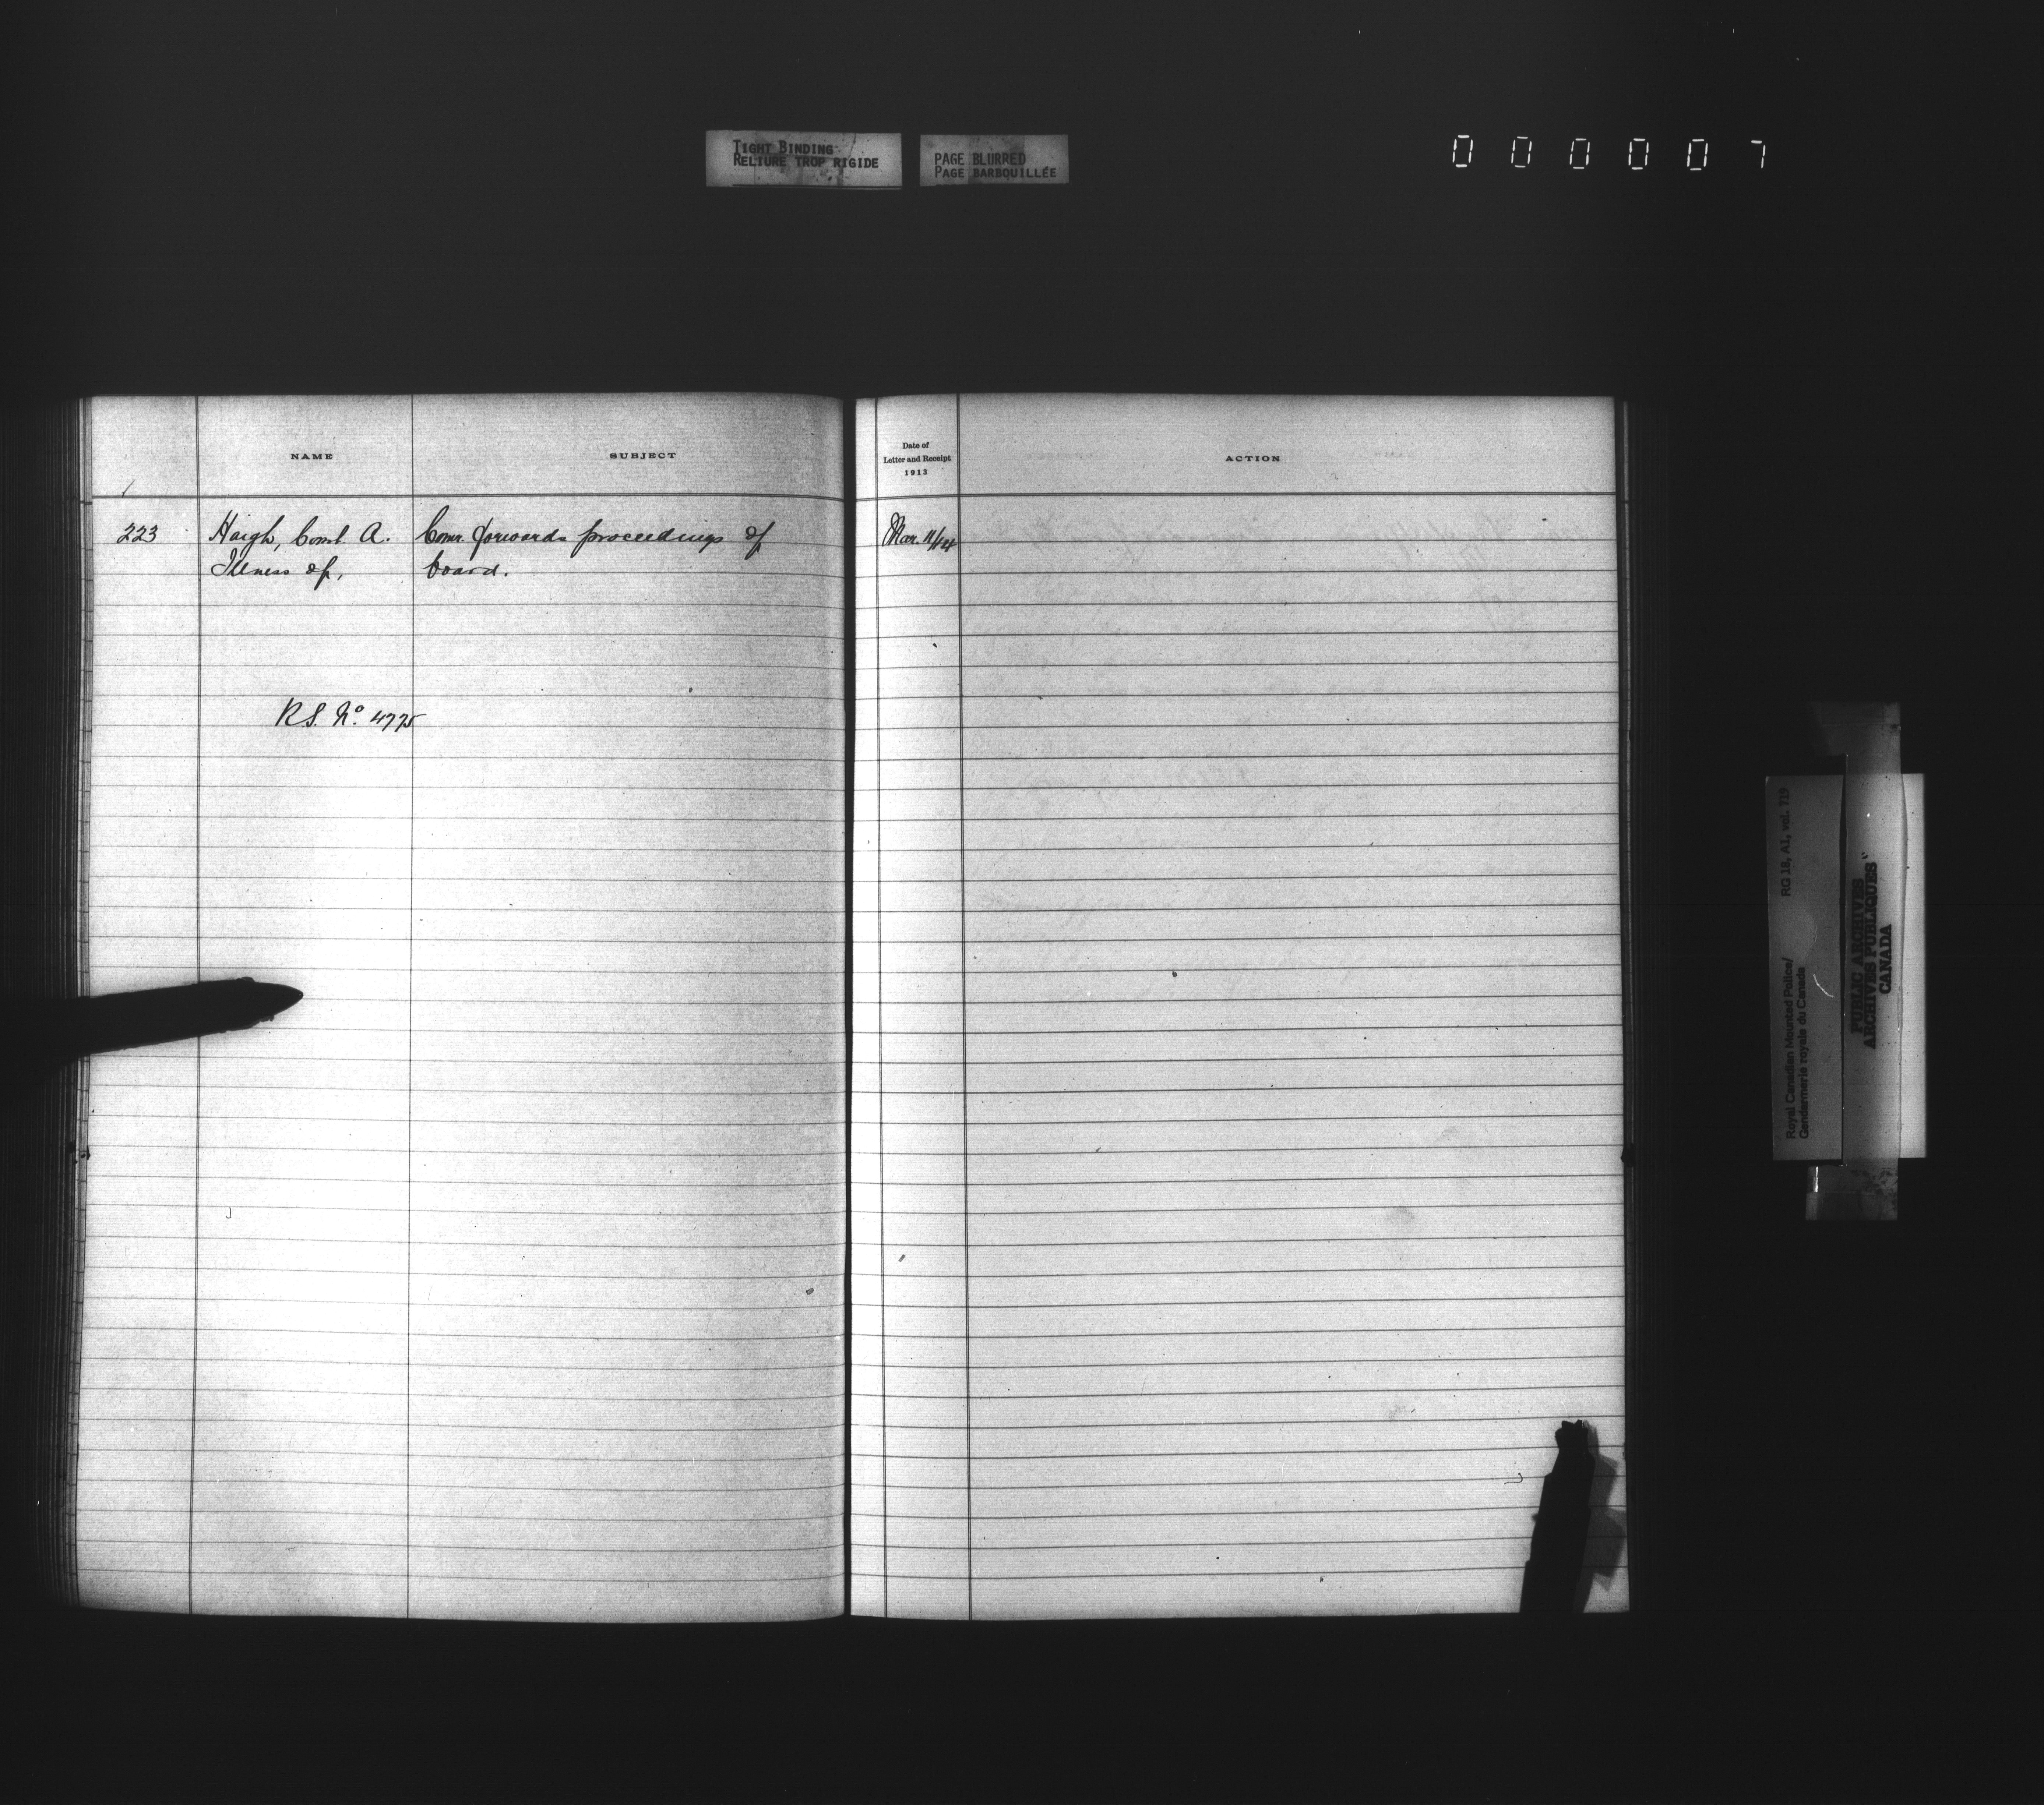 TIGHT BINDING
RELIURE TROP RIGIDE
PAGE BLURRED
PAGE BARBOUILLÉE
000007
NAME
SUBJECT
223
Haigh, Const A.
Illness of,
Comr. forwards proceedings of
board.
R.S. No. 4775
Date of
Letter and Receipt
1913
ACTION
Mar. 11/14
Royal Canadian Mounted Police/
Gendarmerie royale du Canada
RG 18, A1, vol. 719
PUBLIC ARCHIVES
ARCHIVES PUBLIQUES
CANADA